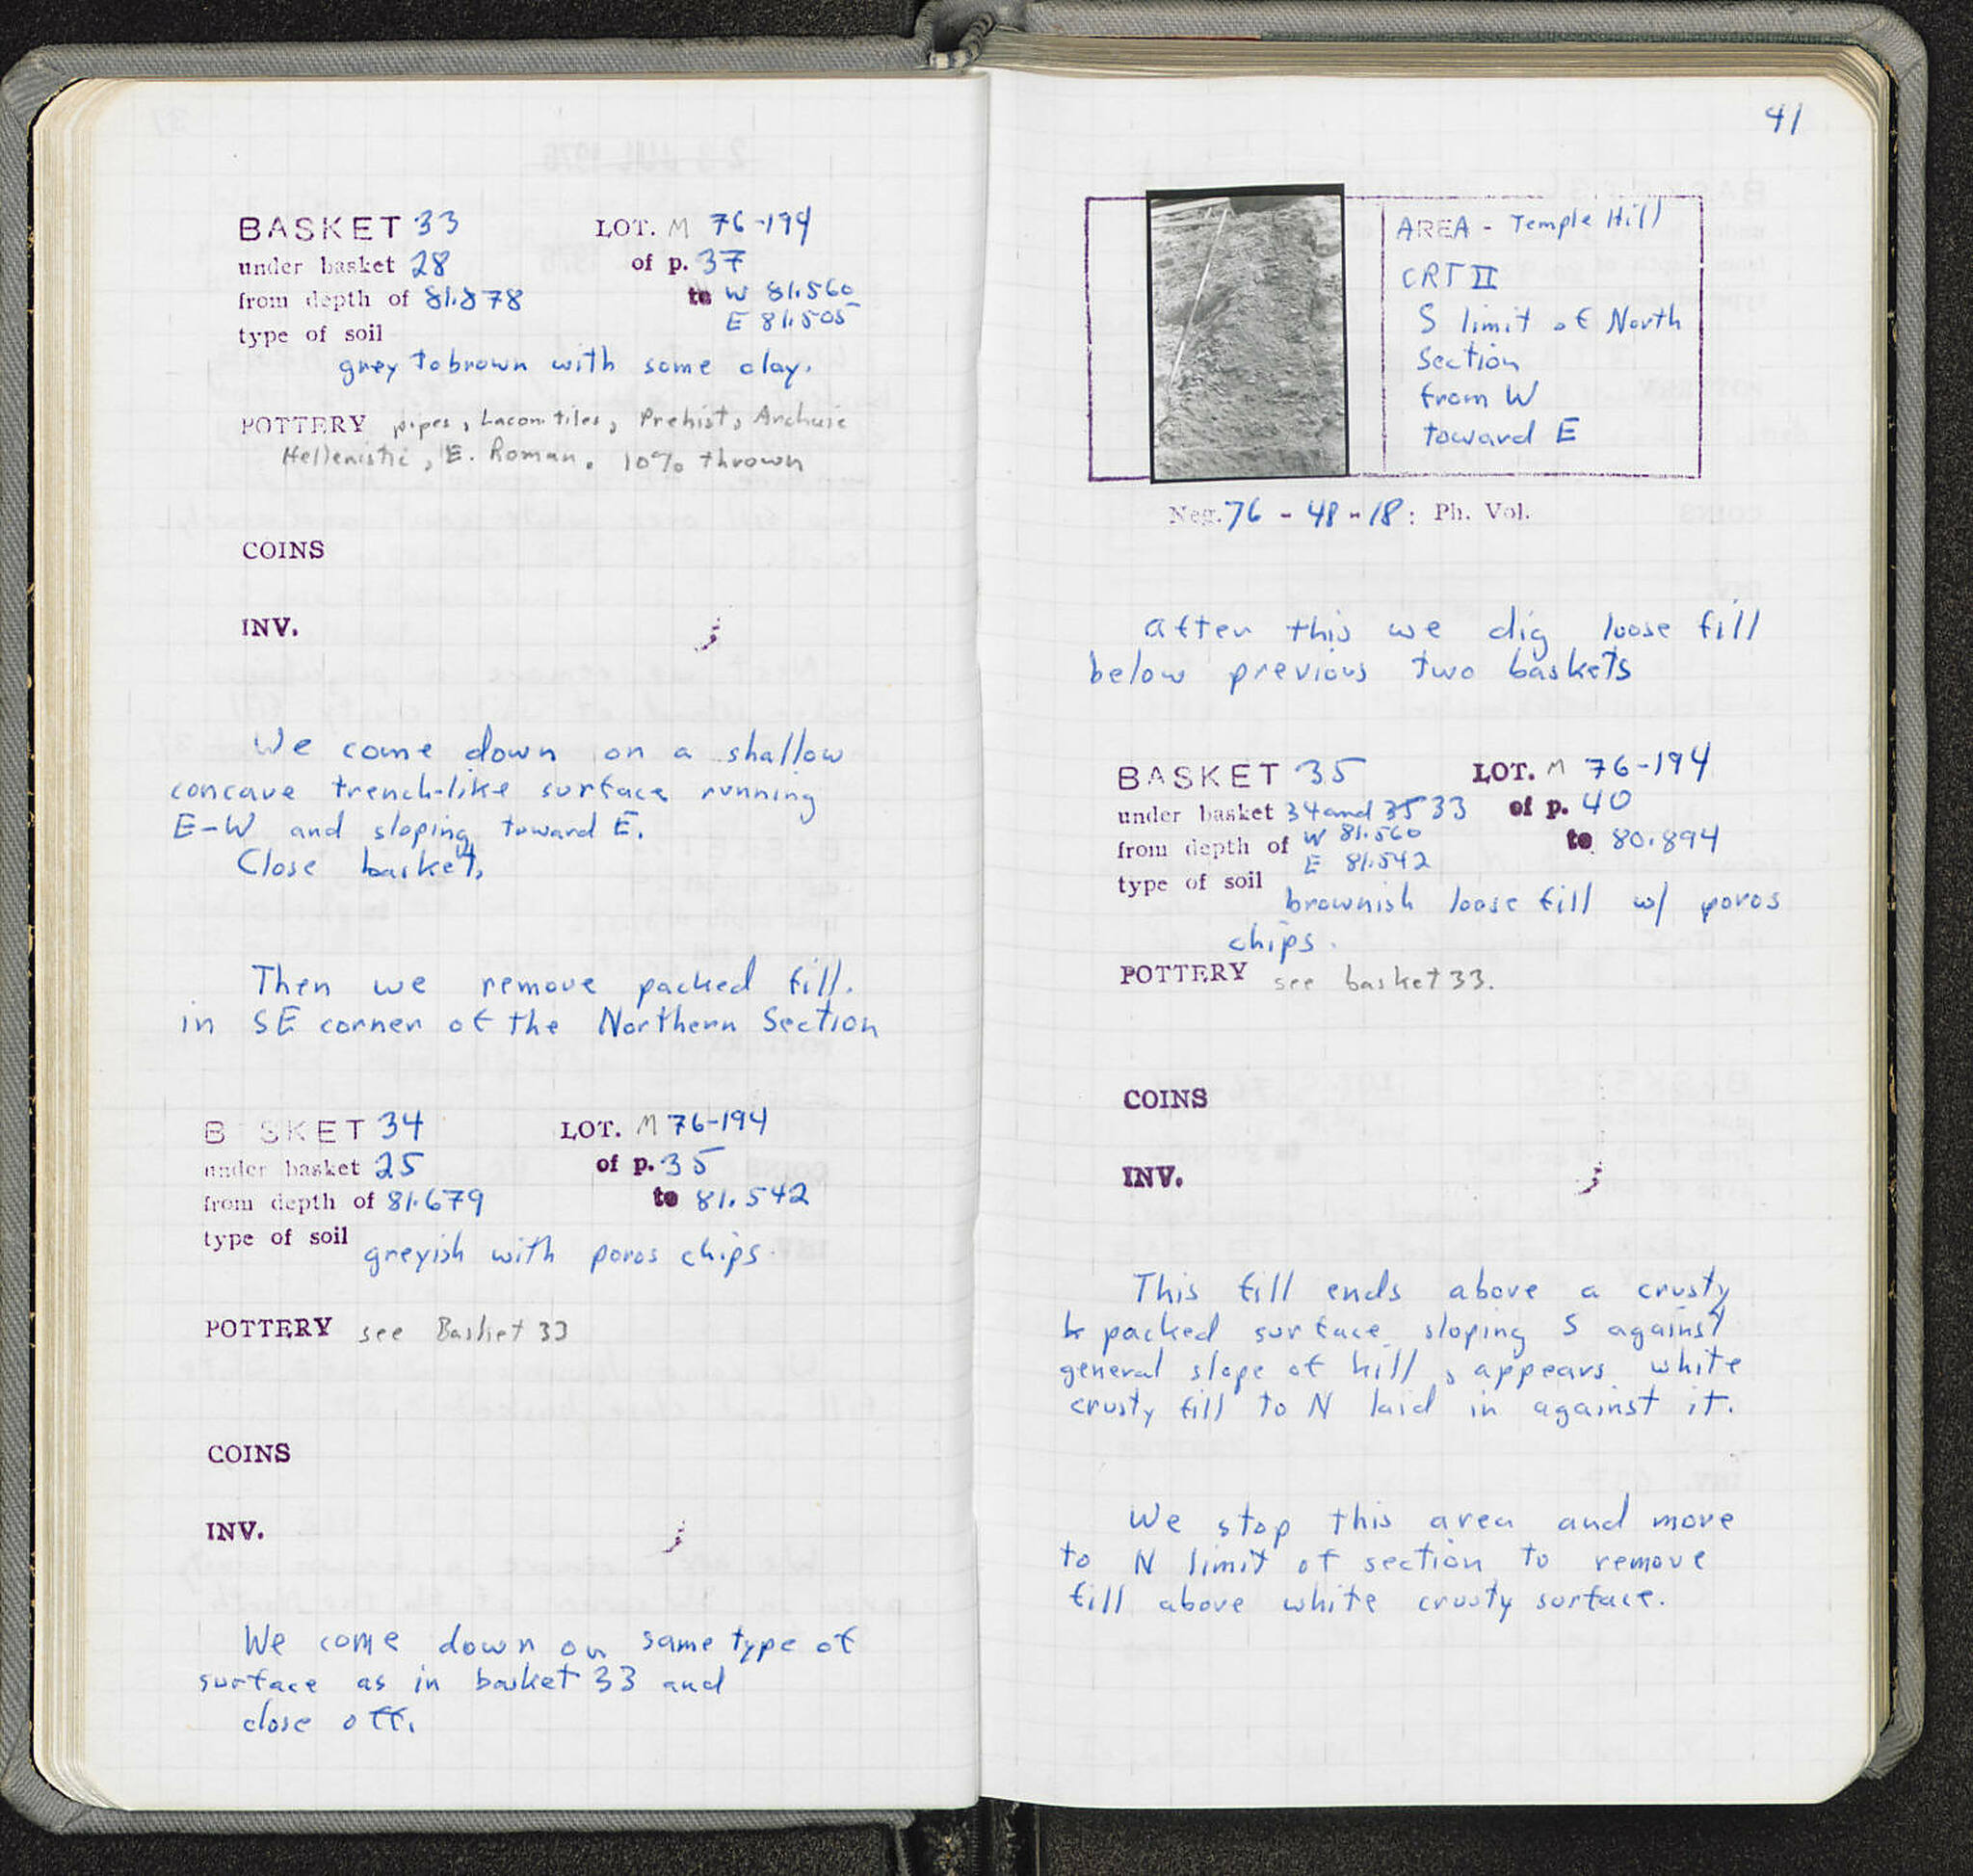 BASKET 33 LOT. M 76-194
under basket 28 of p. 37
from depth of 81.878 to W 81.560
E 81.505
type of soil
grey to brown with some clay.
POTTERY pipes, Lacon. tiles, Prehist, Archaic
Hellenistic, E. Roman. 10% thrown
COINS
INV.
We come down on a shallow
concave trench-like surface running
E-W and sloping toward E.
Close basket.
Then we remove packed fill.
in SE corner of the Northern Section
B SKET 34 LOT. M 76-194
under basket 25 of p. 35
from depth of 81.679 to 81.542
type of soil greyish with poros chips.
POTTERY see Basket 33
COINS
INV.
We come down on same type of
surface as in basket 33 and
close off.
41
AREA - Temple Hill
CRT II
S limit of North
Section
from W
toward E
Neg. 76 - 48 - 18 : Ph. Vol.
After this we dig loose fill
below previous two baskets
BASKET 35 LOT. M 76-194
under basket 34 and 35 33 of p. 40
from depth of W 81.560 to 80.894
E 81.542
type of soil
brownish loose fill w/ poros
chips.
POTTERY see basket 33.
COINS
INV.
This fill ends above a crusty
packed surface sloping S against
general slope of hill, appears white
crusty fill to N laid in against it.
We stop this area and move
to N limit of section to remove
fill above white crusty surface.